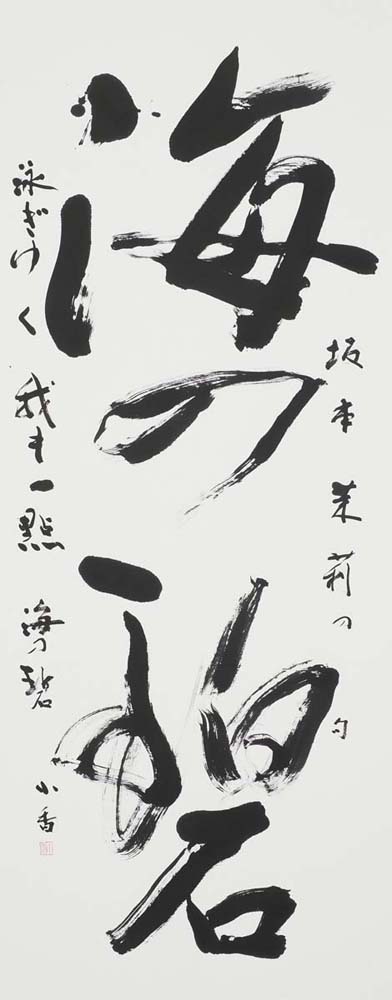 海の碧
坂本茉莉の句
泳ぎゆく我も一點海の碧
小香